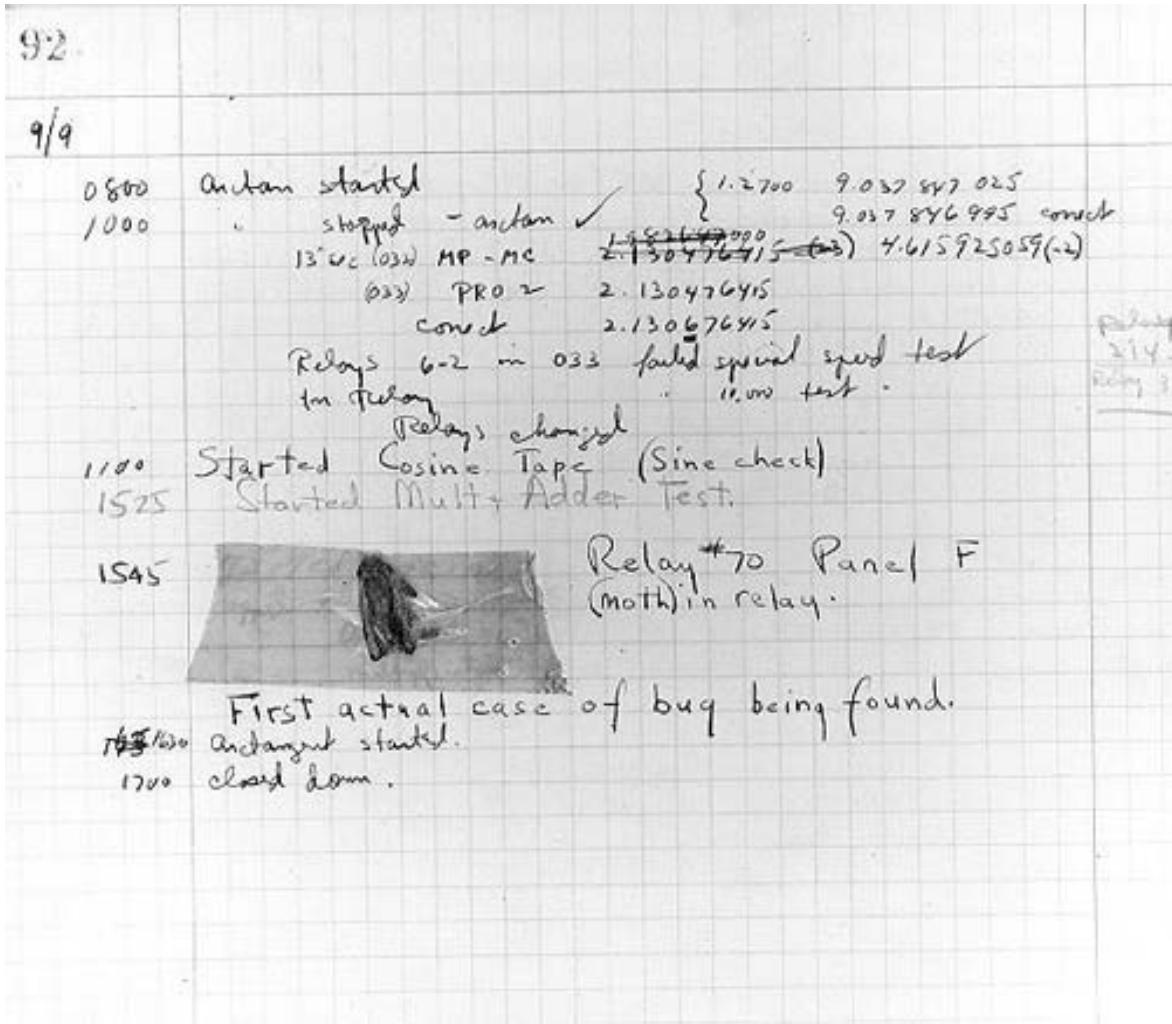 92
9/9
0800 arctan started { 1.2700 9.037 847 025
1000 " stopped - arctan ✓ 9.037 846 995 correct
13" uc (032) MP - MC 2.130476415 (-3) 4.615925059(-2)
(033) PRO 2 2.130476415
correct 2.130676415
Relays 6-2 in 033 failed special speed test
in Relay " 10.000 test .
Relays changed
1100 Started Cosine Tape (Sine check)
1525 Started Mult + Adder Test.
1545 Relay #70 Panel F
(moth) in relay.
First actual case of bug being found.
1630 arctangent started.
1700 closed down.
Relay
214
Relay 3